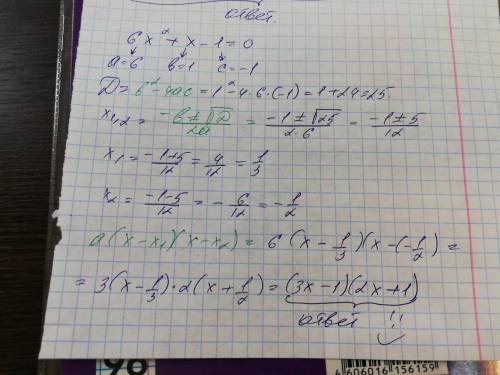 ответ.
6x² + x - 1 = 0
a=6 b=1 c=-1
D = b² - 4ac = 1² - 4·6·(-1) = 1 + 24 = 25.
x₁,₂ = -b ± √D / 2a = -1 ± √25 / 2·6 = -1 ± 5 / 12
x₁ = -1+5 / 12 = 4/12 = 1/3
x₂ = -1-5 / 12 = - 6/12 = - 1/2
a(x-x₁)(x-x₂) = 6(x - 1/3)(x-(-1/2)) =
= 3(x - 1/3)·2(x + 1/2) = (3x-1)(2x+1)
ответ !!
4 606016 156159